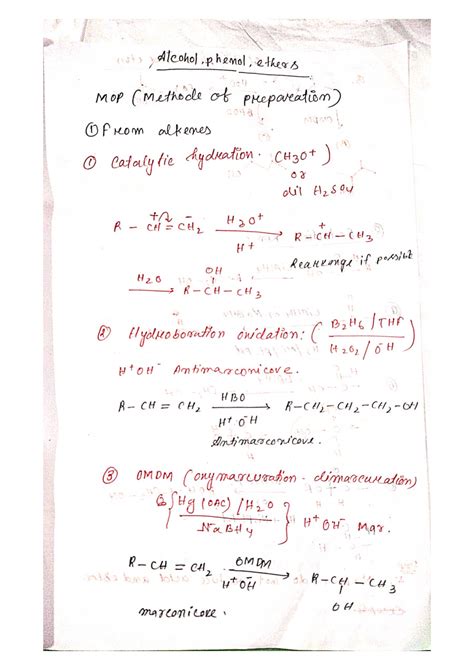 Alcohol, phenol, ethers
MOP (Methode of preparation)
① From alkenes
① Catalytic hydration. (H3O+)
or
dil H2SO4
R - CH = CH2 H3O+ / H+ → R - CH+ - CH3
Rearrange if possible
H2O → R - CH(OH) - CH3
② Hydroboration oxidation: (B2H6 / THF / H2O2 / OH-)
H+ OH- Antimarconicove.
R - CH = CH2 HBO / H+ OH- → R - CH2 - CH2 - CH2 - OH
Antimarconicove.
③ OMDM (oxymarcuration - dimarcuration)
{Hg(OAC) / H2O / NaBH4} H+ OH- Mar.
R - CH = CH2 OMDM / H+ OH- → R - CH - CH3
OH
marconicove.